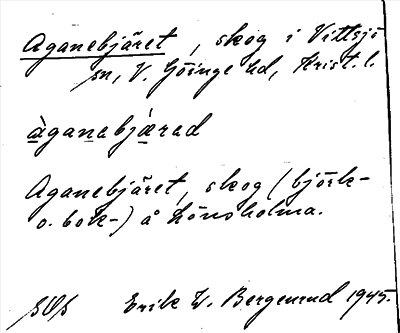 Aganebjäret, skog i Vittsjö
sn, V. Göinge hd, Krist. l.
àganebjærad
Aganebjäret, skog (björk-
o. bok-) å Lönsholma.
SOS Erik W. Bergenrud 1945.